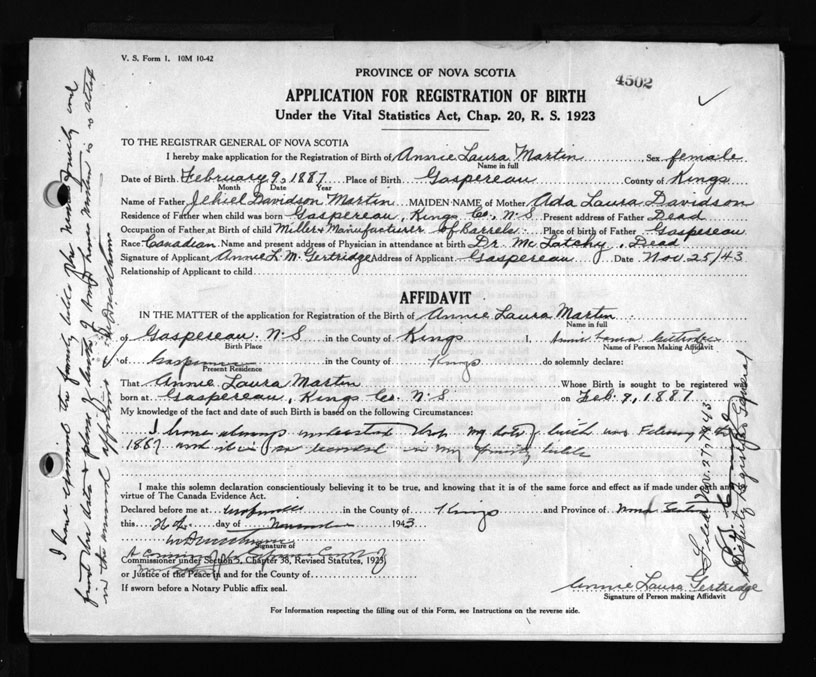 V. S. Form 1. 10M 10-42
4502
PROVINCE OF NOVA SCOTIA
APPLICATION FOR REGISTRATION OF BIRTH
Under the Vital Statistics Act, Chap. 20, R. S. 1923
TO THE REGISTRAR GENERAL OF NOVA SCOTIA
I hereby make application for the Registration of Birth of Annie Laura Martin, Sex female
Name in full
Date of Birth February 9, 1887 Place of Birth Gaspereau County of Kings
Month Date Year
Name of Father Jehiel Davidson Martin MAIDEN NAME of Mother Ada Laura Davidson
Residence of Father when child was born Gaspereau, Kings Co., N.S Present address of Father Dead
Occupation of Father at Birth of child Miller & Manufacturer of Barrels. Place of birth of Father Gaspereau
Race Canadian. Name and present address of Physician in attendance at birth Dr. McLatchy, Dead
Signature of Applicant Annie L. M. Gertridge Address of Applicant Gaspereau Date Nov. 25/43
Relationship of Applicant to child
AFFIDAVIT
IN THE MATTER of the application for Registration of Birth of Annie Laura Martin
Name in full
of Gaspereau. N.S in the County of Kings I, Annie Laura Gertridge
Birth Place Name of Person Making Affidavit
of Gaspereau in the County of Kings do solemnly declare:
Present Residence
That Annie Laura Martin Whose Birth is sought to be registered was
born at Gaspereau, Kings Co. N.S on Feb. 9, 1887
My knowledge of the fact and date of such Birth is based on the following Circumstances:
I have always understood that my date of birth was February 9th
1887 and it is so recorded in my family bible
I make this solemn declaration conscientiously believing it to be true, and knowing that it is of the same force and effect as if made under oath and
virtue of The Canada Evidence Act.
Declared before me at Wolfville in the County of Kings and Province of Nova Scotia
this 26th day of November 1943
Signature of
A Commissioner of the Supreme Court of
Commissioner under Section 5, Chapter 38, Revised Statutes, 1923
or Justice of the Peace in and for the County of
If sworn before a Notary Public affix seal.
Annie Laura Gertridge
Signature of Person making Affidavit
For Information respecting the filling out of this Form, see Instructions on the reverse side.
I have examined the family bible of the Martin family and
find the date & place of birth of Annie Laura Martin is as stated
in the annexed affidavit
Filed Nov. 27, 1943
Deputy Registrar General